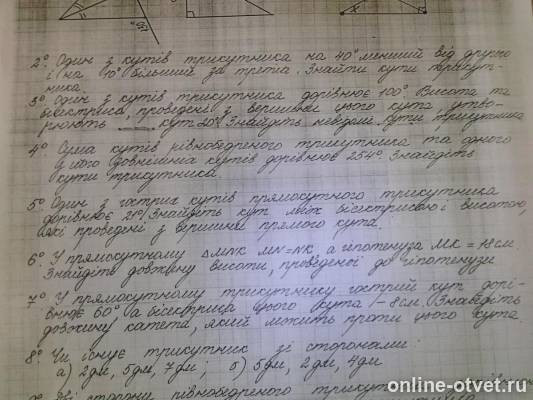 130°
x
2° Один з кутів трикутника на 40° менший від другого
і на 10° більший за третій. Знайти кути трикут-
ника.
3° Один з кутів трикутника дорівнює 100°. Висота та
бісектриса, проведені з вершини цього кута, утво-
рюють кут 20°. Знайдіть невідомі кути трикутника
4° Сума кутів рівнобедреного трикутника та одного
з його зовнішніх кутів дорівнює 254°. Знайдіть
кути трикутника.
5° Один з гострих кутів прямокутного трикутника
дорівнює 21°. Знайдіть кут між бісектрисою і висотою,
які проведені з вершини прямого кута.
6° У прямокутному △MNK MN=NK а гіпотенуза MK = 18см
Знайдіть довжину висоти, проведеної до гіпотенузи
7° У прямокутному трикутнику гострий кут дорі-
внює 60° а бісектриса цього кута - 8см. Знайдіть
довжину катета, який лежить проти цього кута.
8° Чи існує трикутник зі сторонами:
а) 2дм, 5дм, 7дм; б) 5дм, 2дм, 4дм
сторони рівнобедреного
online-otvet.ru